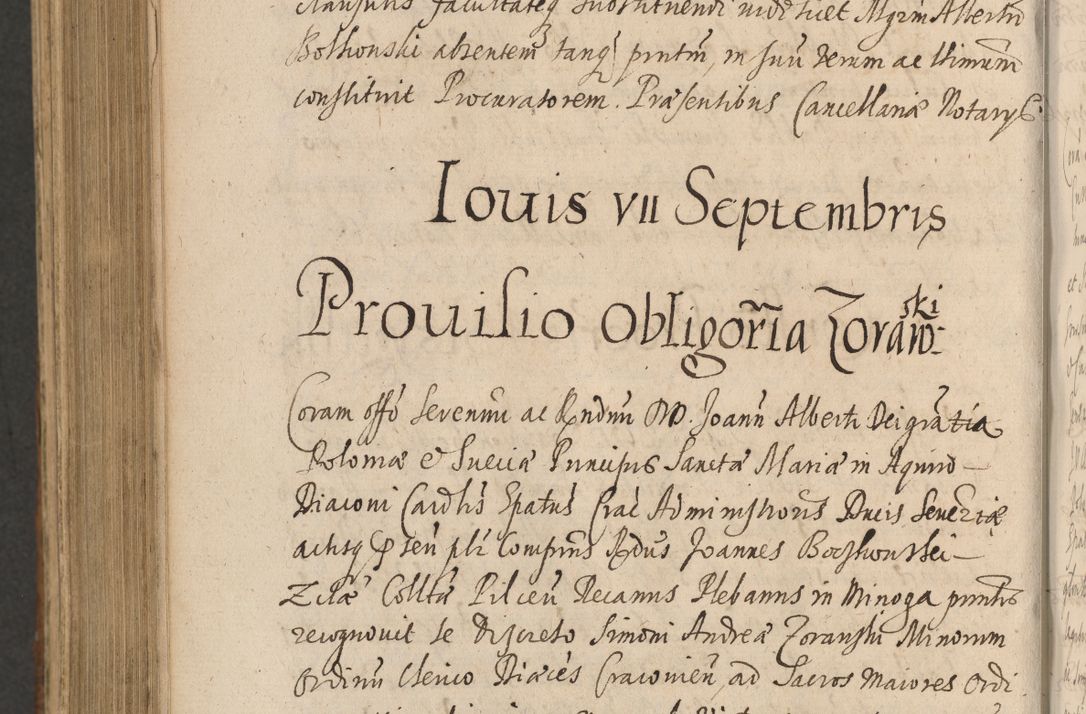 clausulis facultateq substituendi nidhilet Mgrm Albertū
Bolhowski absentem tanq pntm, in suū verum ac ltimum
constituit Procuratorem. Præsentibus Cancellariæ Notarys
Iouis VII Septembris
Prouisio obligor̃ia Zoraw:ski
Coram offo Serenmi ac Rndmi DD. Joann Alberti Dei gratia
Poloniæ & Sueciæ Principis Sanctæ Mariæ in Aquiro
Diaconi Cardlis Epatus Crac Administroris Ducis Seueriæ
actisq psen pli Comprns Rdus Joannes Borzkowski
Eclæ Colltæ Pilcen Decanus Plebanus in Minoga pnntis
recognouit se Discreto Simoni Andreæ Zoranski Minorum
Ordinū Clerico Diæces Cracouien, ad Sacros Maiores Ordi